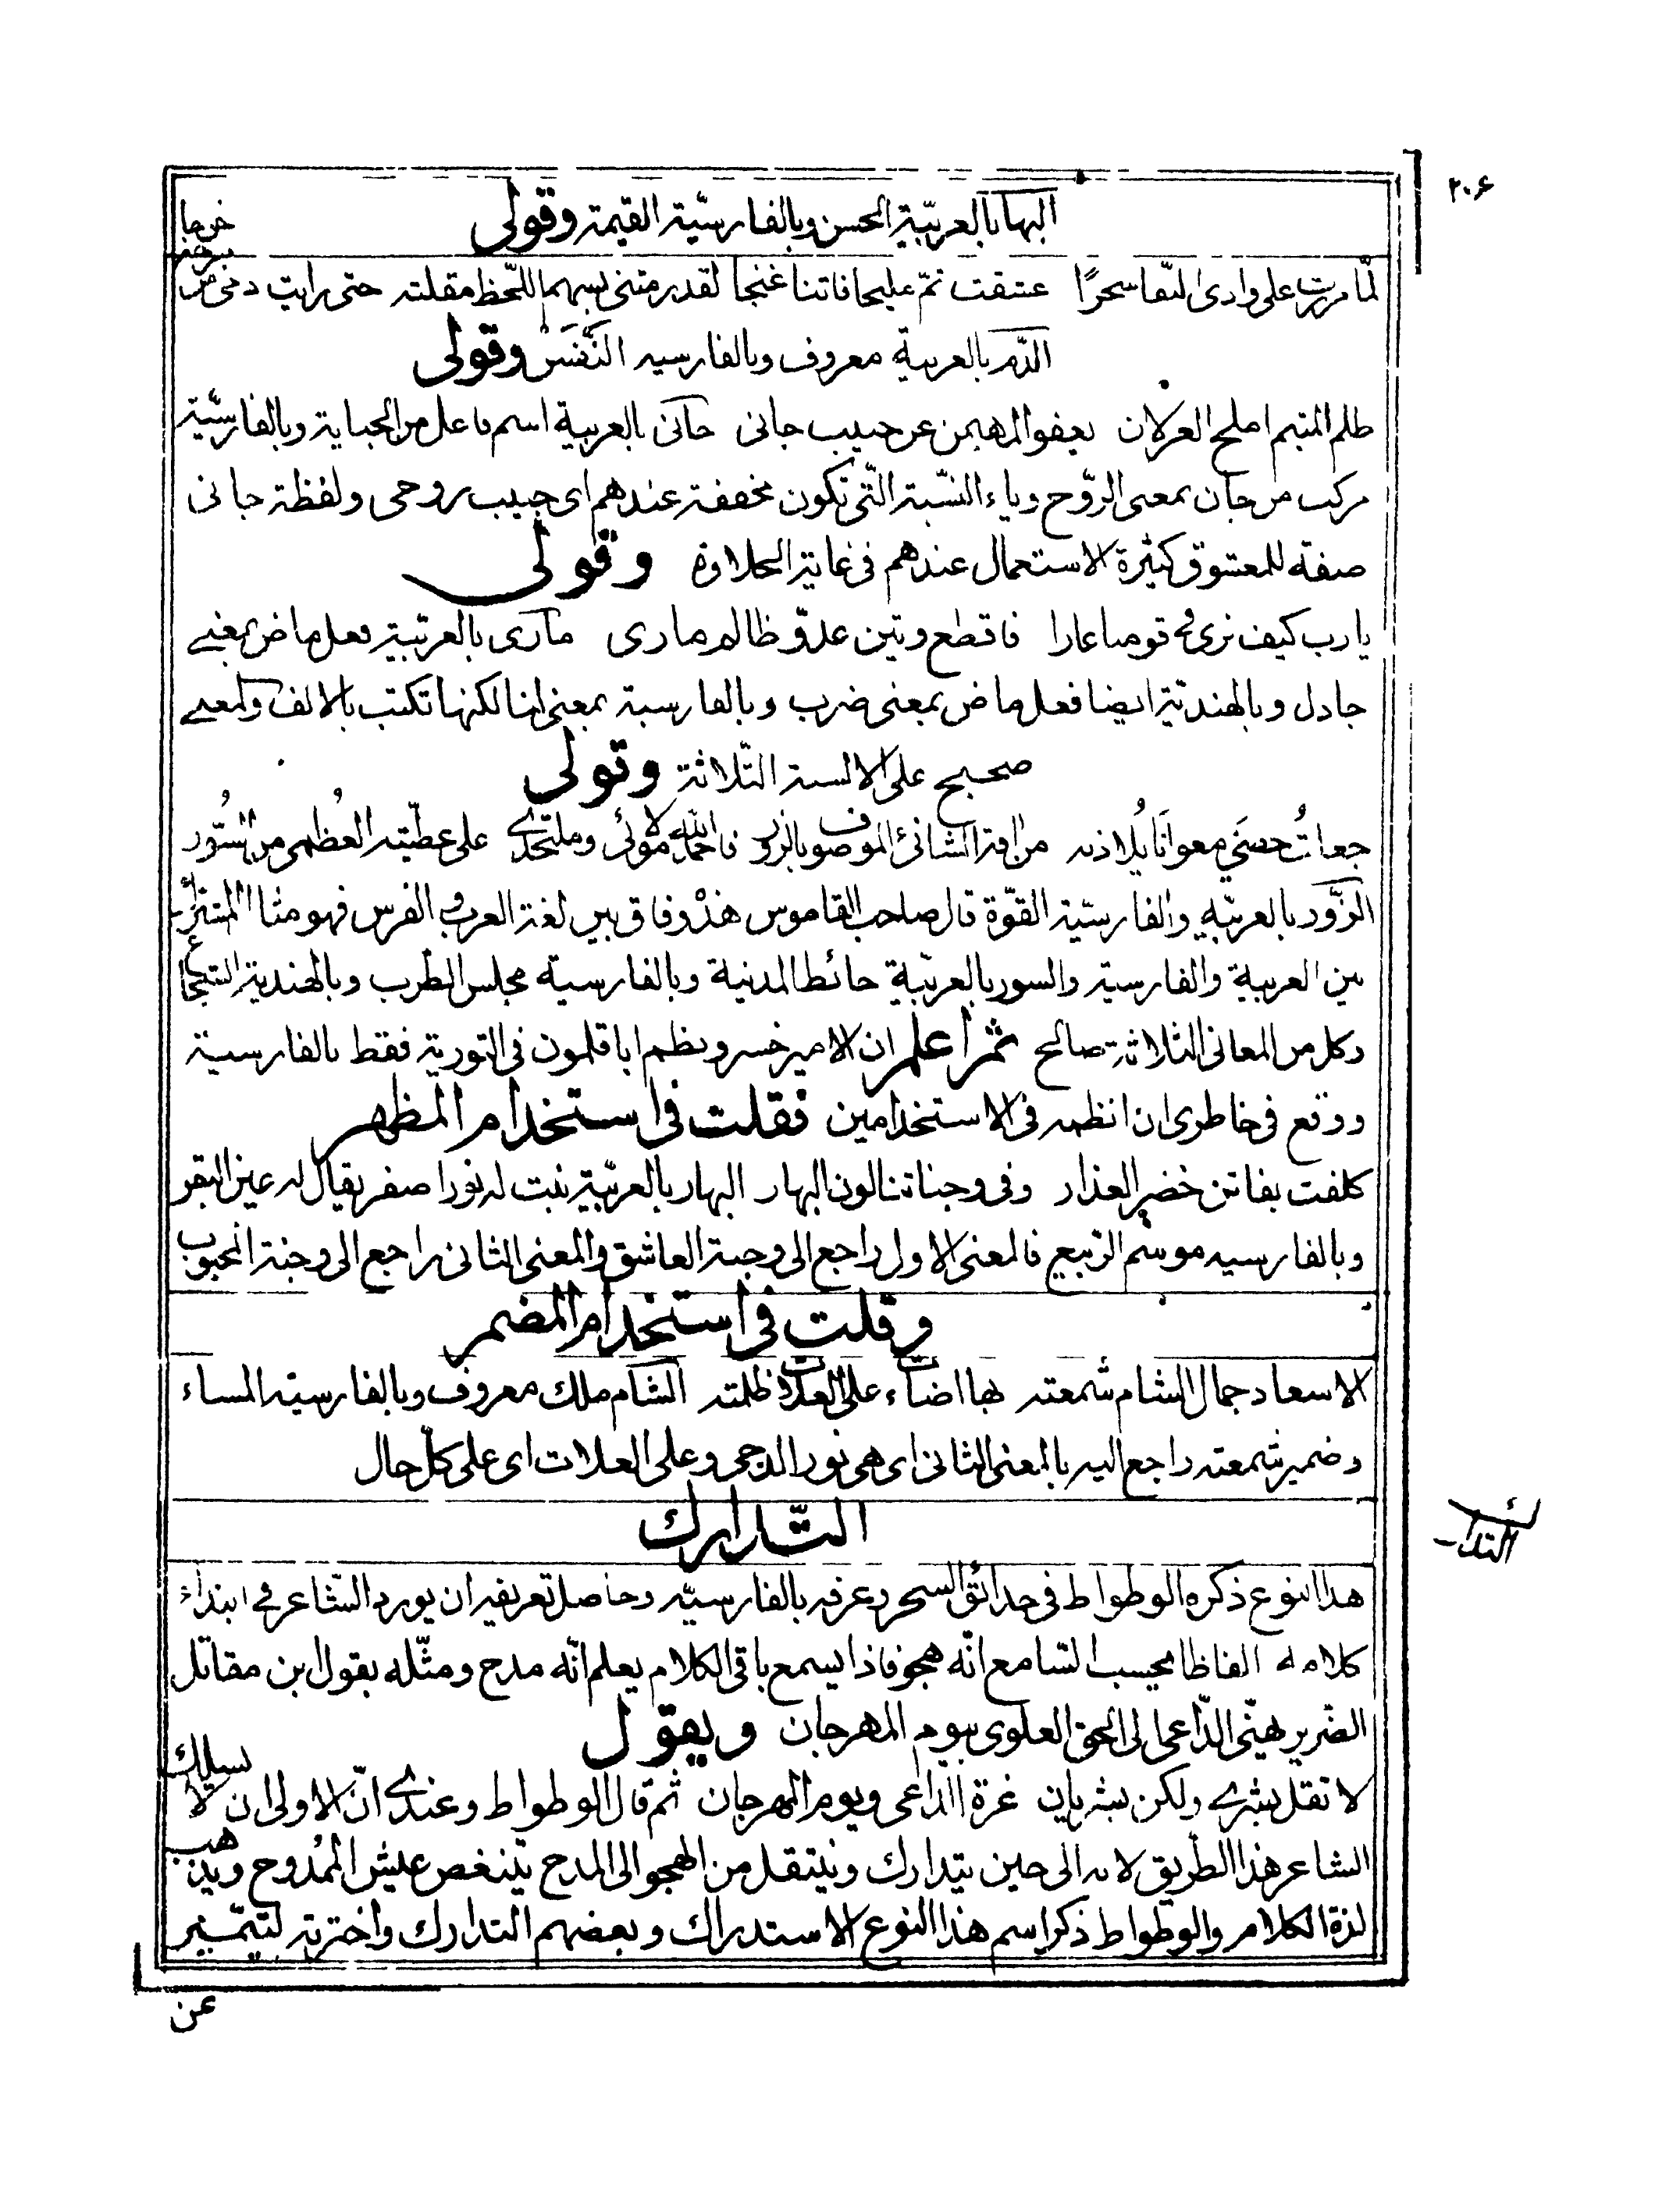 ٢٠٦
البها بالعربيّة الحسن وبالفارسيّة القيمة وقولى
لمّا مررت على وادى النّقا سحرًا عشقت ثمّ مليحا فاتنا غنجا لقد رمتنى بسهم اللّحظ مقلته حتى رايت دمى من جرحه خرجا
الدّم بالعربية معروف وبالفارسيه النَّفَسْ وقولى
ظلم المتيم املح الغزلان يعفو المهيمن عن حبيب جانى جانى بالعربية اسم فاعل من الجناية وبالفارسّية
مركب من جان بمعنى الرّوح وياء النسّبة التّى تكون مخففة عندهم اى حبيب روحى ولفظة جانى
صفة للمعشوق كثيرة الاستعمال عندهم فى غاية الحلاوة وقولى
يارب كيف نرى فى قومنا عارا فاقطع وتين عدوّ ظالم مارى مارى بالعربّية فعل ماض بمعنى
جادل وبالهنديّة ايضا فعل ماض بمعنى ضرب وبالفارسية بمعنى لكنها تكتب بالالف والمعنى
صحيح على الالسنة الثّلاثة وقولى
جعلتُ حصنى معوانًا يُلاذ به من افة الشانئ الموصوف بالزور فاحمد الله مولائى وملتحدى على عطيّته العُظمى من السُّور
الزَّور بالعربّيه والفارسيّة القوّة قال صاحب القاموس هذا وفاق بين لغة العرب والفرس فهو مثال المشترك
بين العربية والفارسية والسور بالعربيّة حائط المدينة وبالفارسية مجلس الطرب وبالهندية الشجاع
وكل من المعانى الثلاثة صالح ثمر اعلم ان الامير خسرو نظم ابا قلمون فى التورية فقط بالفارسية
ووقع فى خاطرى ان انظمه فى الاستخدامين فقلت فى استخدام المظهر
كلفت بفاتن خضر العذار وفى وجناتنا لون البهار البهار بالعربيّة نبت له نور اصفر يقال له عين البقر
وبالفارسيه موسم الرّبيع فالمعنى الاول راجع الى وجنة العاشق والمعنى الثانى راجع الى وجنة المحبوب
وقلت فى استخدام المضمر
الا سعاد جمال الشام شمعته بها اضاءت على العلات ظلمته الشام ملك معروف وبالفارسية المساء
وضمير شمعته راجع اليه بالمعنى الثانى اى هى نور الدجى وعلى العلات اى على كلّ حال
التّدارك
التدارك
هذا النوع ذكره الوطواط فى حدائق السحر وعرفه بالفارسيّه وحاصل تعريفه ان يورد الشّاعر فى ابتداء
كلامه الفاظا يحسب السّامع انّه هجو فاذا يسمع باقى الكلام يعلم انّه مدح ومثّله بقول ابن مقاتل
الضّرير يهنّى الدّاعى الى الحق العلوى بيوم المهرجان ويقول
لا تقل بشرى ولكن بشريان غرة الدّاعى ويوم المهرجان ثم قال الوطواط وعندى انّ الاولى ان لا يسلك
الشاعر هذا الطّريق لانه الى حين يتدارك وينتقل من الهجو الى المدح يتنغص عيش الممُدوح ويذهب
لذة الكلام والوطواط ذكر اسم هذا النوع الاستدراك وبعضهم التدارك واخترته لتيميز
عن